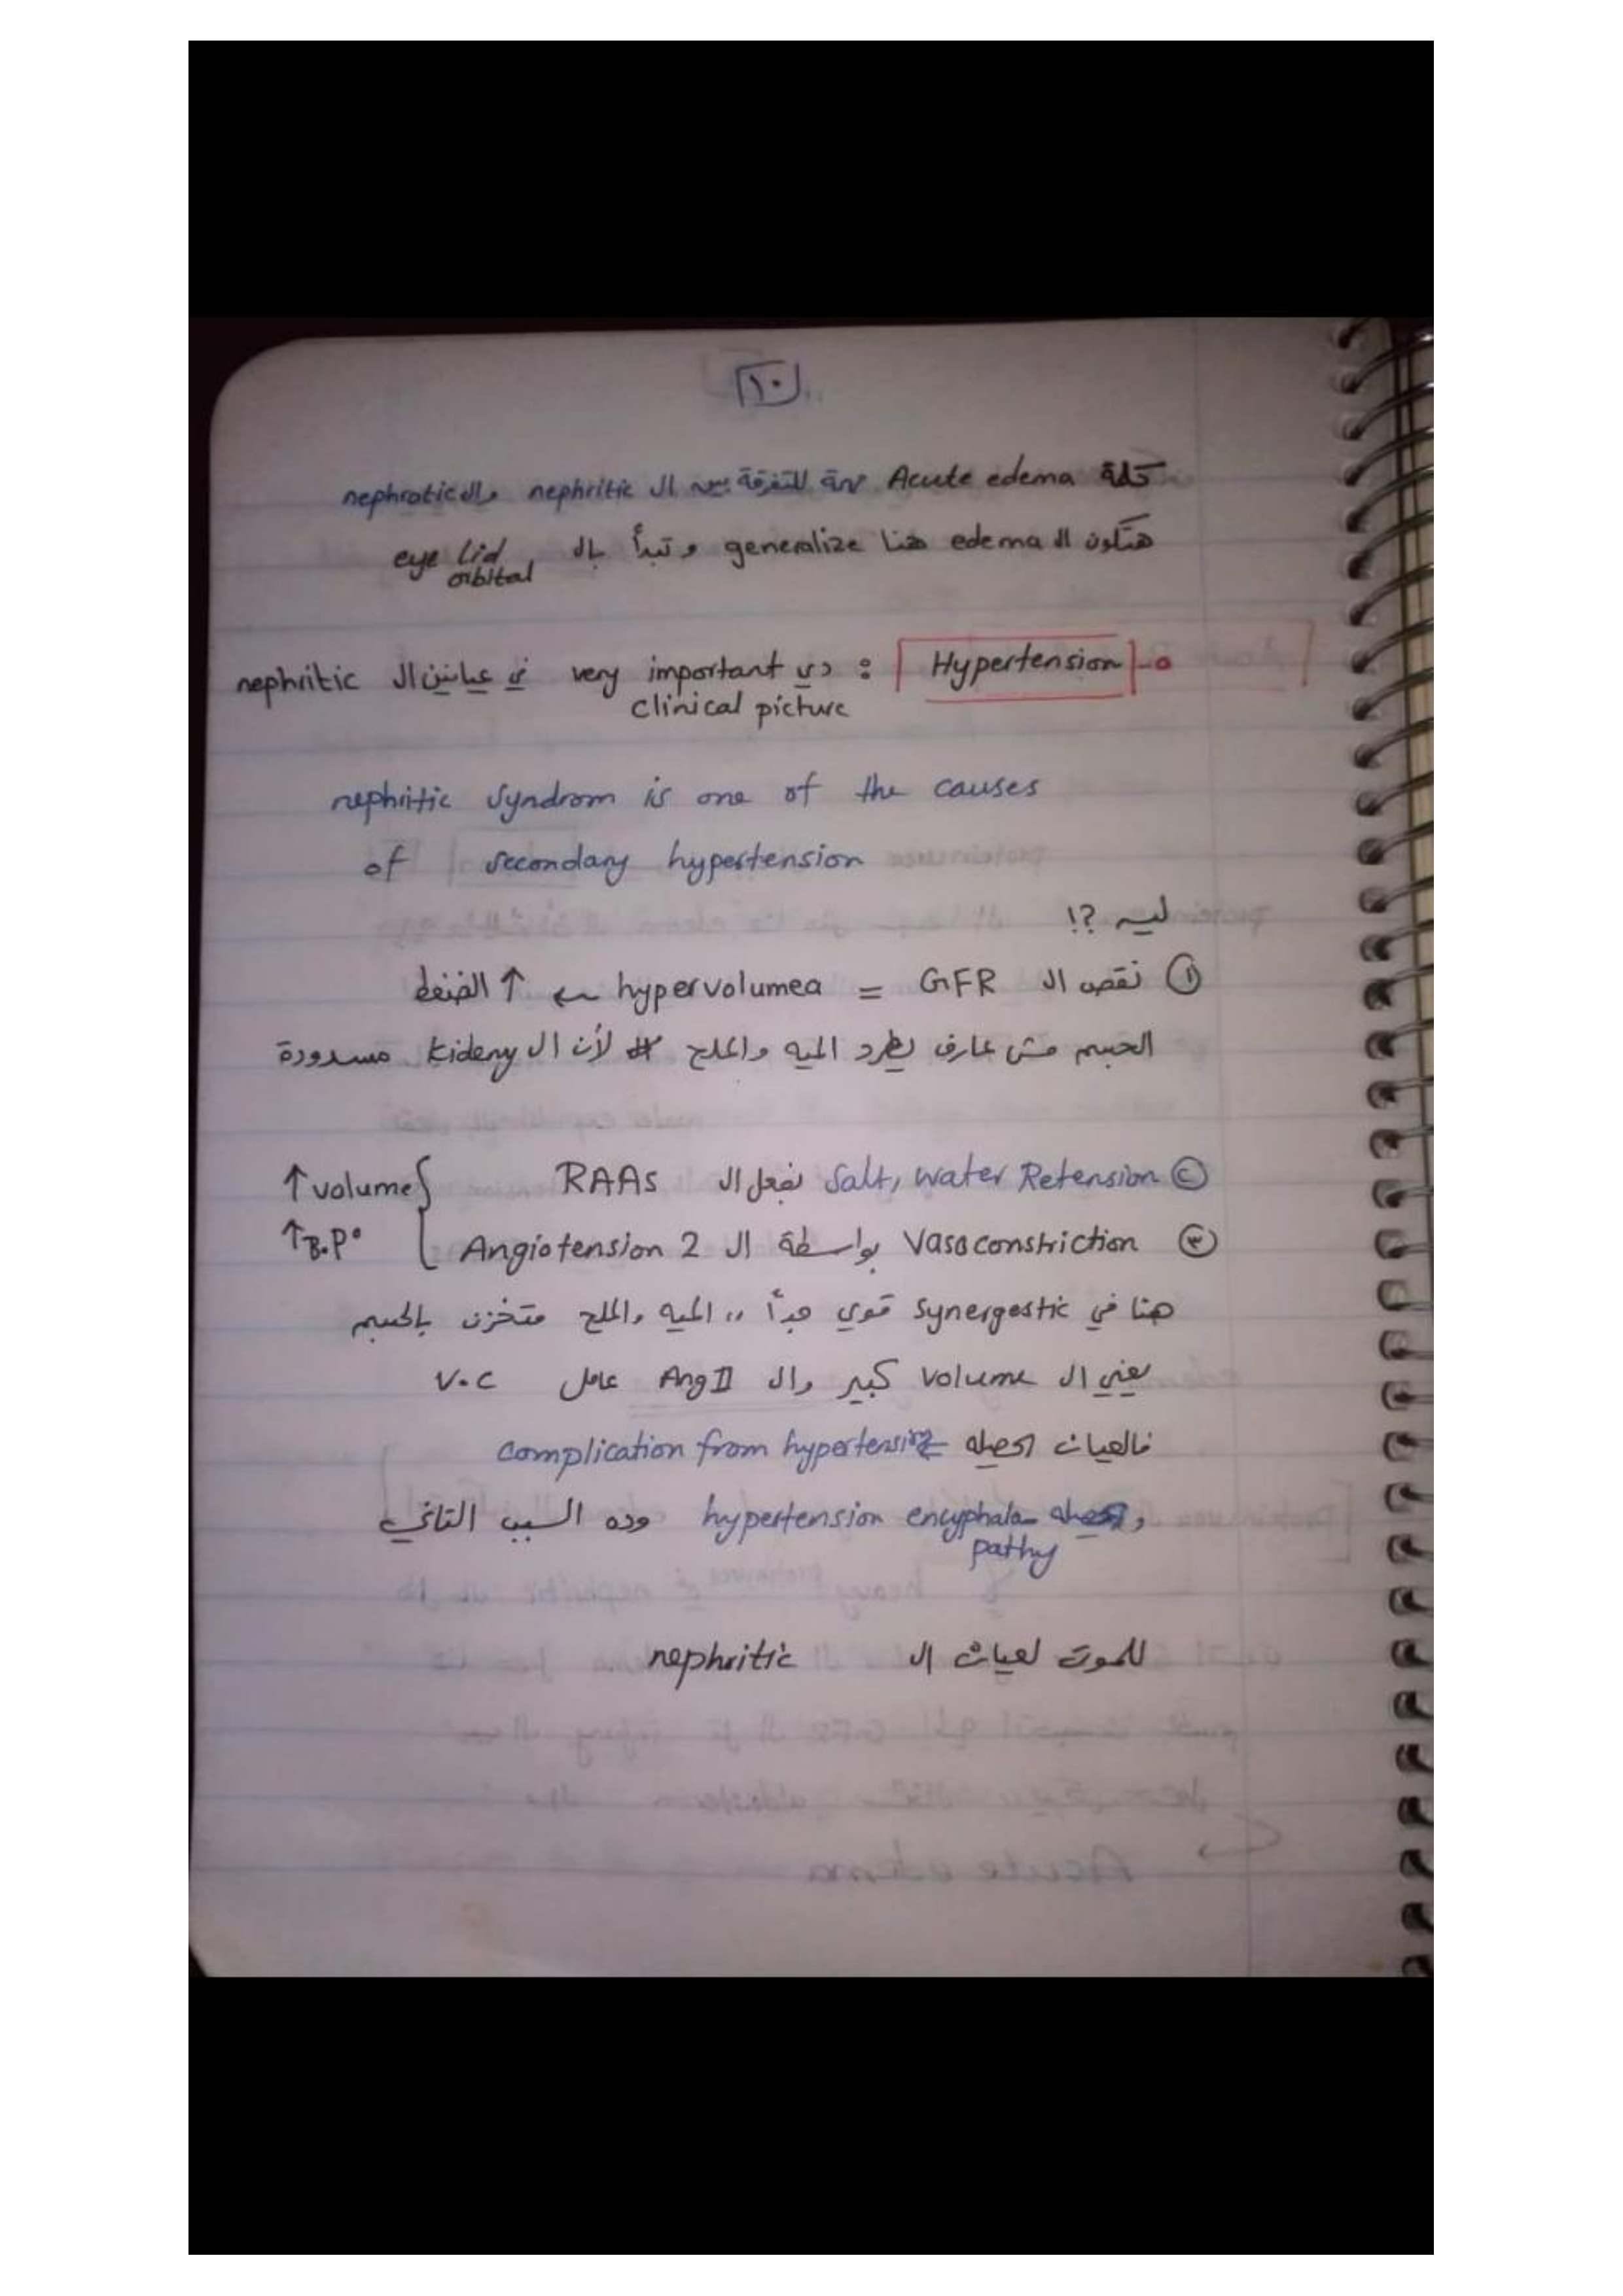 ١٠
كلمة Acute edema مهمة للتفرقة بين ال nephritic وال nephrotic
هتكون ال edema هنا generalize و تبدأ بال eye Lid
orbital
٥- Hypertension : دي very important في عيانين ال nephritic
clinical picture
nephritic syndrom is one of the causes
of secondary hypertension
ليه ?!
① نقص ال GFR = hypervolumea ← ↑ الضغط
الجسم مش عارف يطرد الميه والملح لأن ال kideny مسدودة
② Salt, water Retension بفعل ال RAAs } ↑ volume
③ Vasoconstriction بواسطة ال Angiotension 2 ↑ B.P
هنا في synergestic قوي جداً ,, الميه والملح متخزن بالجسم
يعني ال volume كبير وال Ang II عامل V.C
فالعيان يحصله complication from hypertension
و يحصله hypertension encyphalo- وده السبب التاني
pathy
للموت لعيان ال nephritic